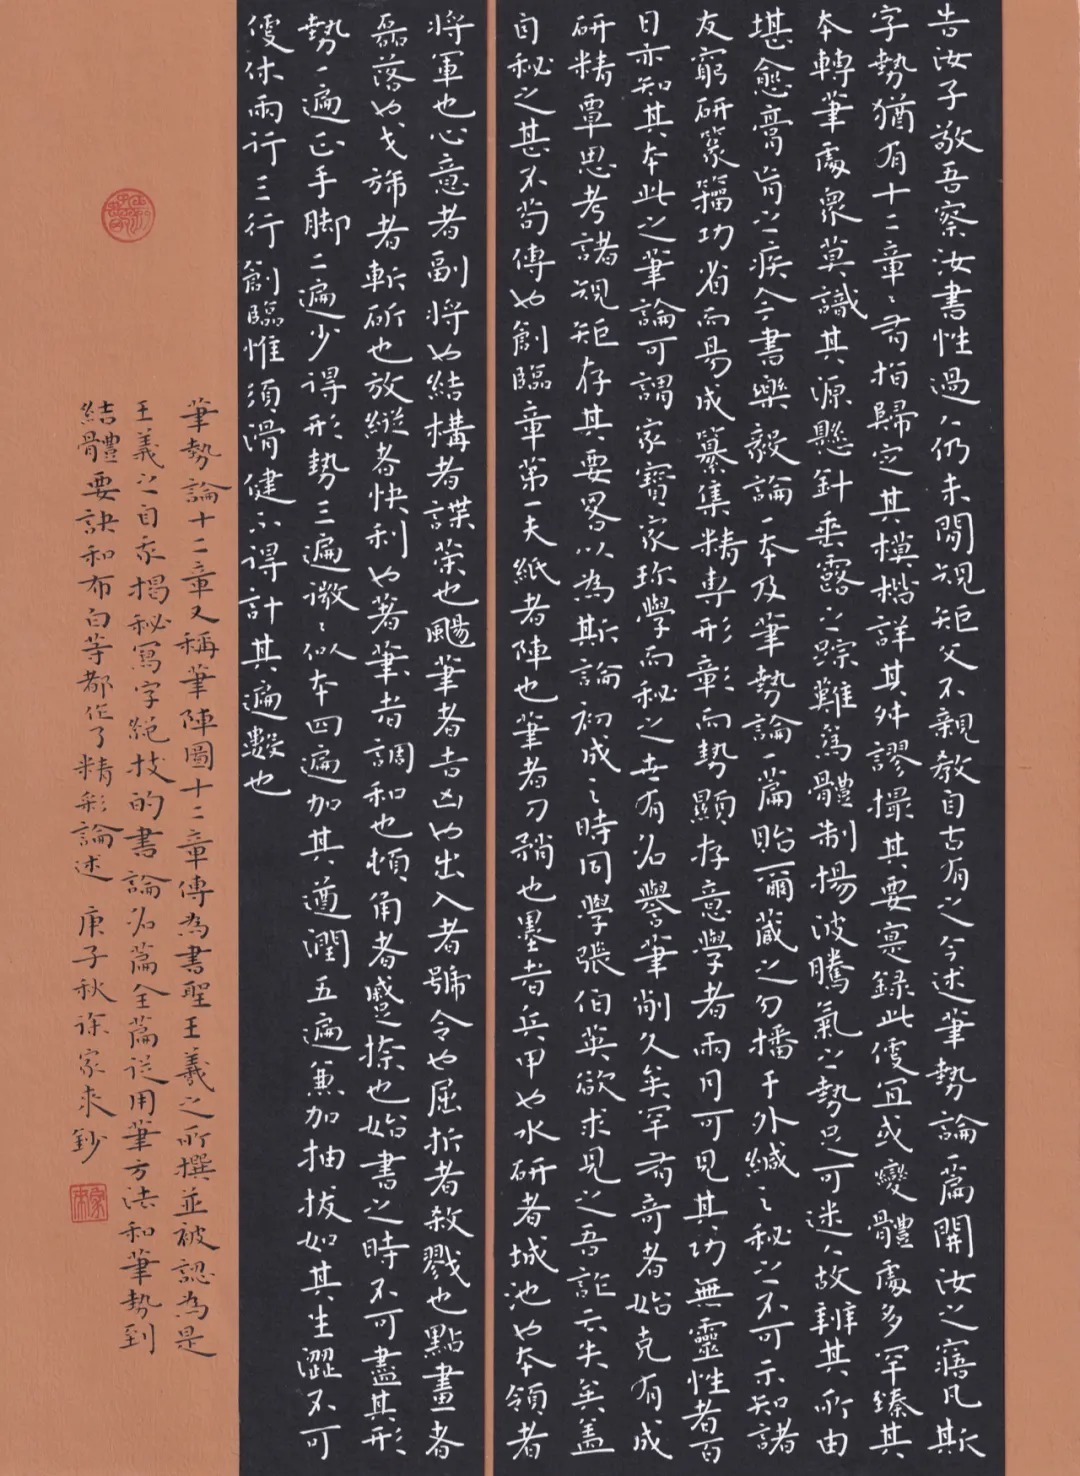 告汝子敬吾察汝書性過人仍未閑規矩父不親教自古有之今述筆勢論一篇開汝之寤凡斯
字勢猶有十二章章有指歸定其模楷詳其舛謬撮其要寔錄此便宜或變體處多罕臻其
本轉筆處眾莫識其源懸針垂露之蹤難為體制揚波騰氣之勢足可迷人故辨其所由
堪愈膏肓之疾今書樂毅論一本及筆勢論一篇貽爾藏之勿播于外緘之秘之不可示知諸
友窮研篆籀功省而易成纂集精專形彰而勢顯存意學者兩月可見其功無靈性者百
日亦知其本此之筆論可謂家寶家珍學而秘之世有名譽筆削久矣罕有奇者始克有成
研精覃思考諸規矩存其要略以為斯論初成之時同學張伯英欲求見之吾詐云失矣蓋
自秘之甚不苟傳也創臨章第一夫紙者陣也筆者刀矟也墨者兵甲也水研者城池也本領者
將軍也心意者副將也結構者謀策也颺筆者吉凶也出入者號令也屈折者殺戮也點畫者
磊落也戈旆者斬斫也放縱者快利也著筆者調和也頓角者蹙捺也始書之時不可盡其形
勢一遍正手腳二遍少得形勢三遍微微似本四遍加其遒潤五遍兼加抽拔如其生澀不可
便休兩行三行創臨惟須滑健不得計其遍數也
筆勢論十二章又稱筆陣圖十二章傳為書聖王羲之所撰並被認為是
王羲之自家揭秘寫字絕技的書論名篇全篇從用筆方法和筆勢到
結體要訣和布白等都作了精彩論述 庚子秋徐家來鈔